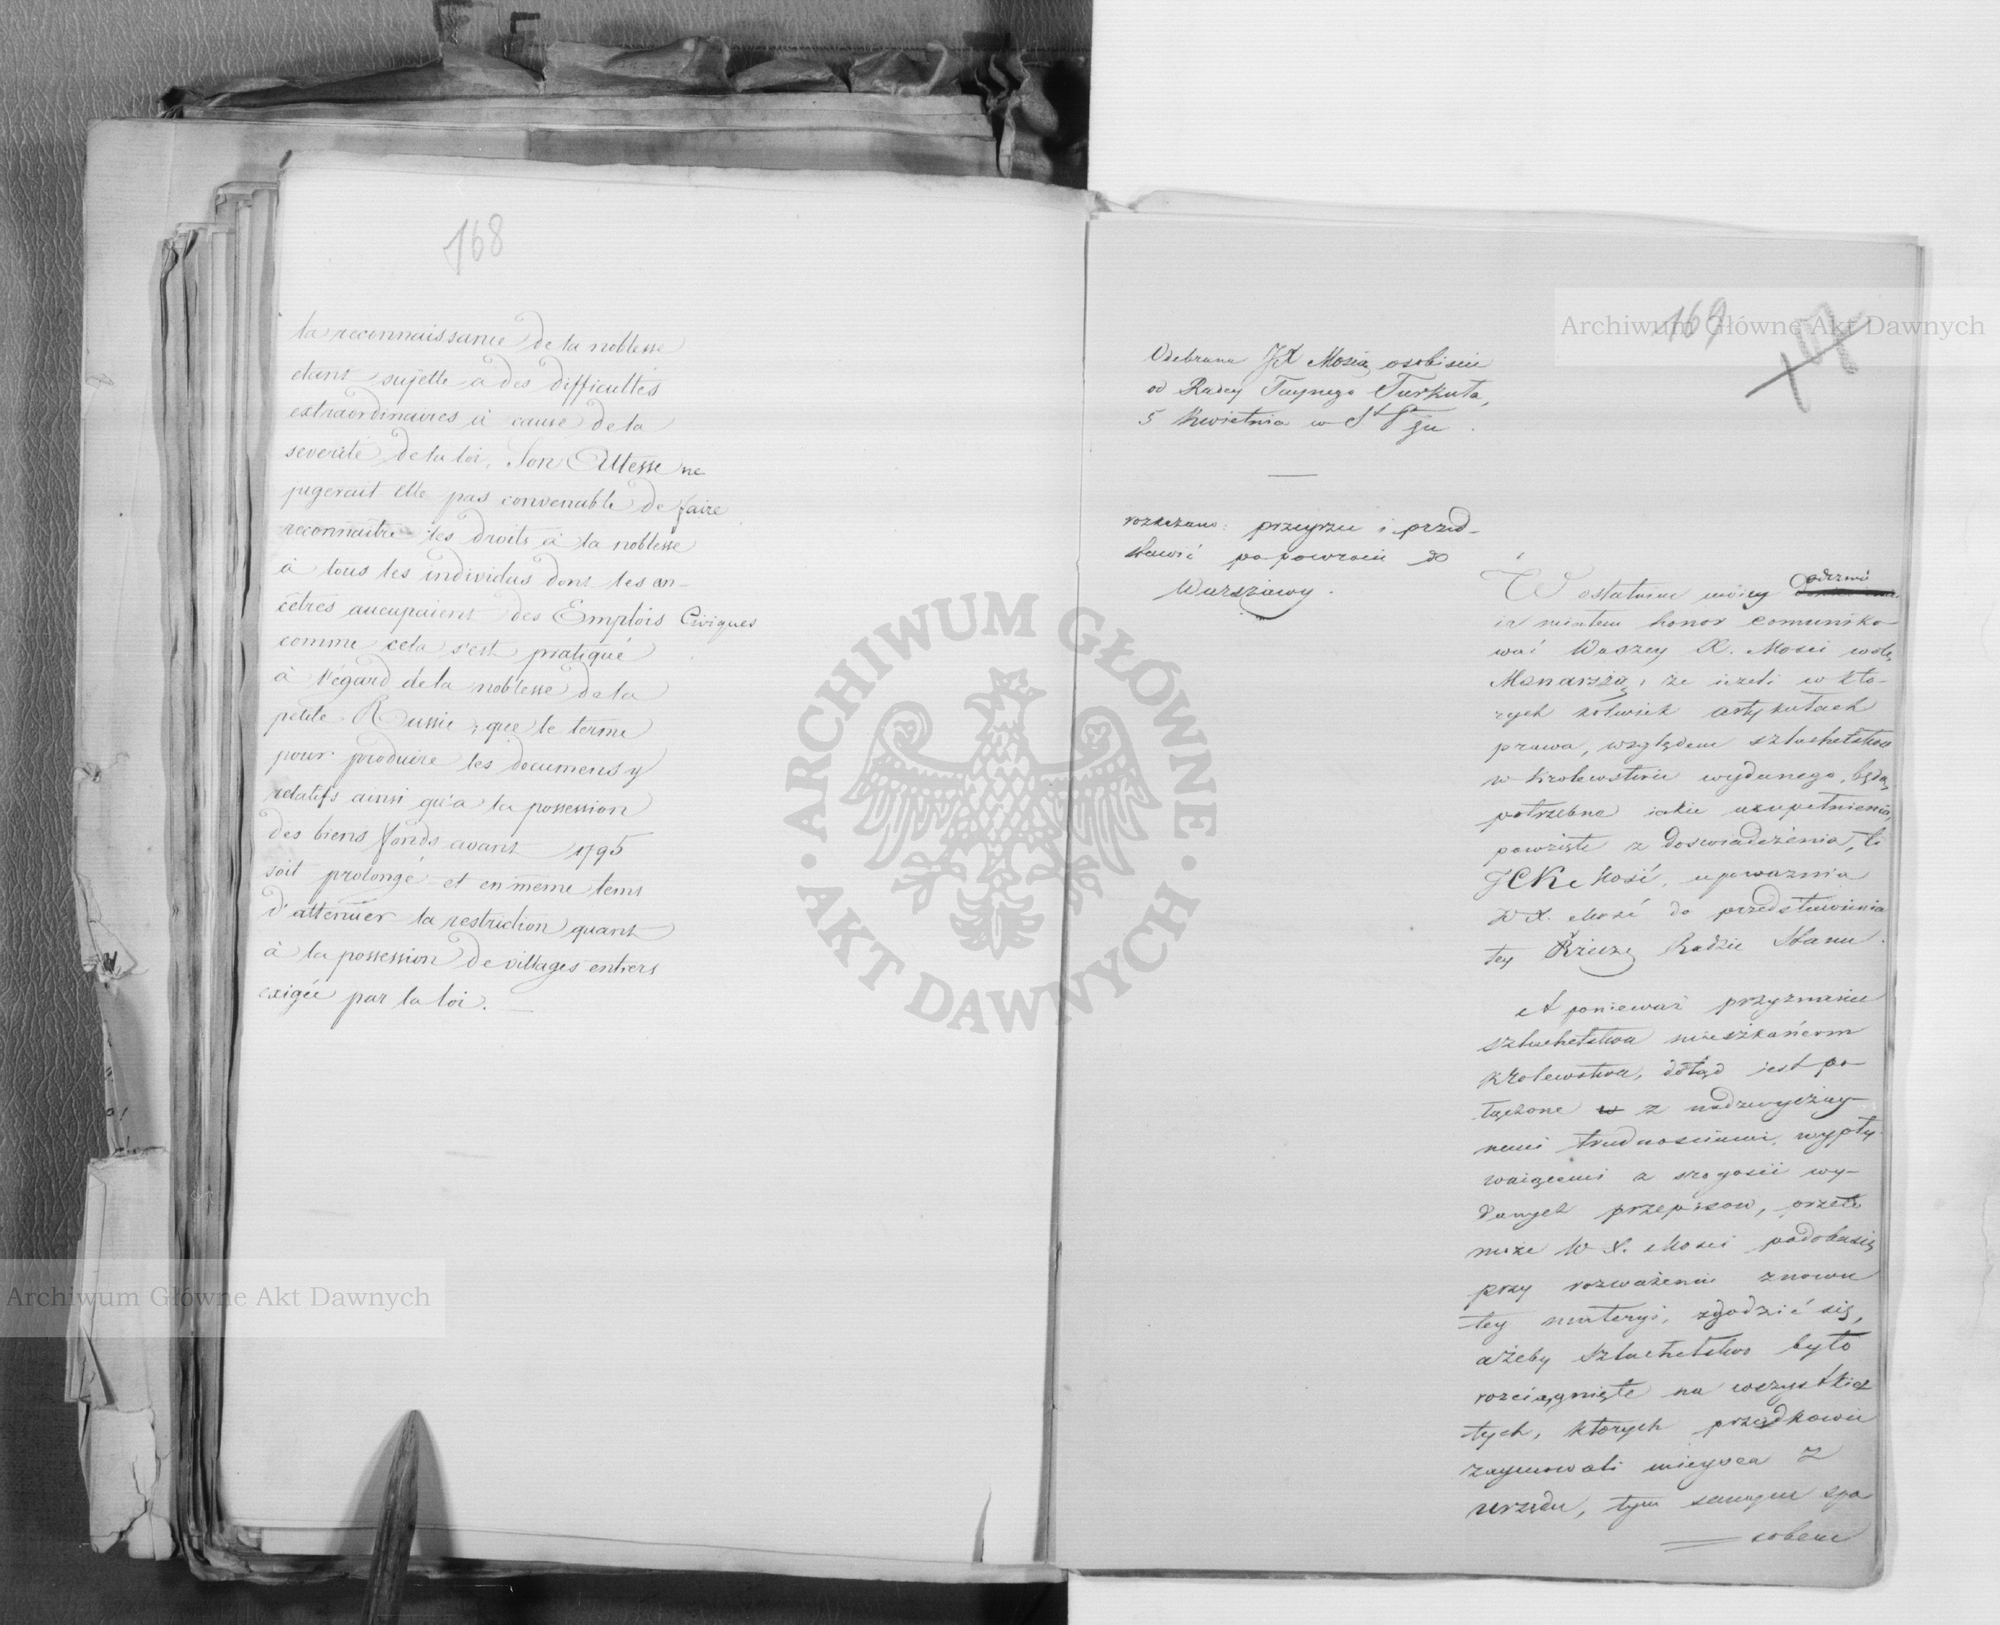 168
la reconnaissance de la noblesse
etant sujette à des difficultés
extraordinaires à cause de la
severité de la loi, Son Altesse ne
jugerait elle pas convenable de faire
reconnaitre les droits à la noblesse
à tous les individus dont les an-
cêtres auccupaient des Emplois Civiques
comme cela s'est pratiqué
à l'égard de la noblesse de la
petite Russie; que le terme
pour produire les documens y
relatifs ainsi qu'a la possession
des biens fonds avant 1795
soit prolongé et en meme tems
d'attenuer la restriction quant
à la possession de villages entiers
exigée par la loi.
169
Odebrane JX Mością osobiscie
od Radcy Taynego Turkuła,
5 Kwietnia w St Pgu.
rozkazano: przeyrzec i przed-
stawić po powrocie do
Warszawy.
W ostatniey moiey odezwie
ia miałem honor comuniko-
wać Waszey X. Mosci wolę
Monarszą, że ieżeli w któ-
rych kolwiek artykułach
prawa, względem szlachectwa
w Krolewstwie wydanego, będą
potrzebne iakie uzupełnienia,
powzięte z doswiadczenia, to
JCKr Mość, upoważnia
W X. Mość do przedstawienia
tey Rzeczy Radzie Stanu.
A ponieważ przyznanie
szlachectwa mieszkańcom
Krolewstwa, dotąd iest po-
łączone z nadzwyczay-
nemi trudnosciami, wypły-
waiącemi z srogosci wy-
danych przepisow, przeto
może W X. Mosci podoba się
przy rozważeniu znowu
tey materyi, zgodzić się,
ażeby szlachectwo było
rozciągnięte na wszystkich
tych, ktorych przodkowie
zaymowali mieysca z
urzędu, tym samym spo
sobem
Archiwum Główne Akt Dawnych
Archiwum Główne Akt Dawnych
ARCHIWUM GŁÓWNE AKT DAWNYCH